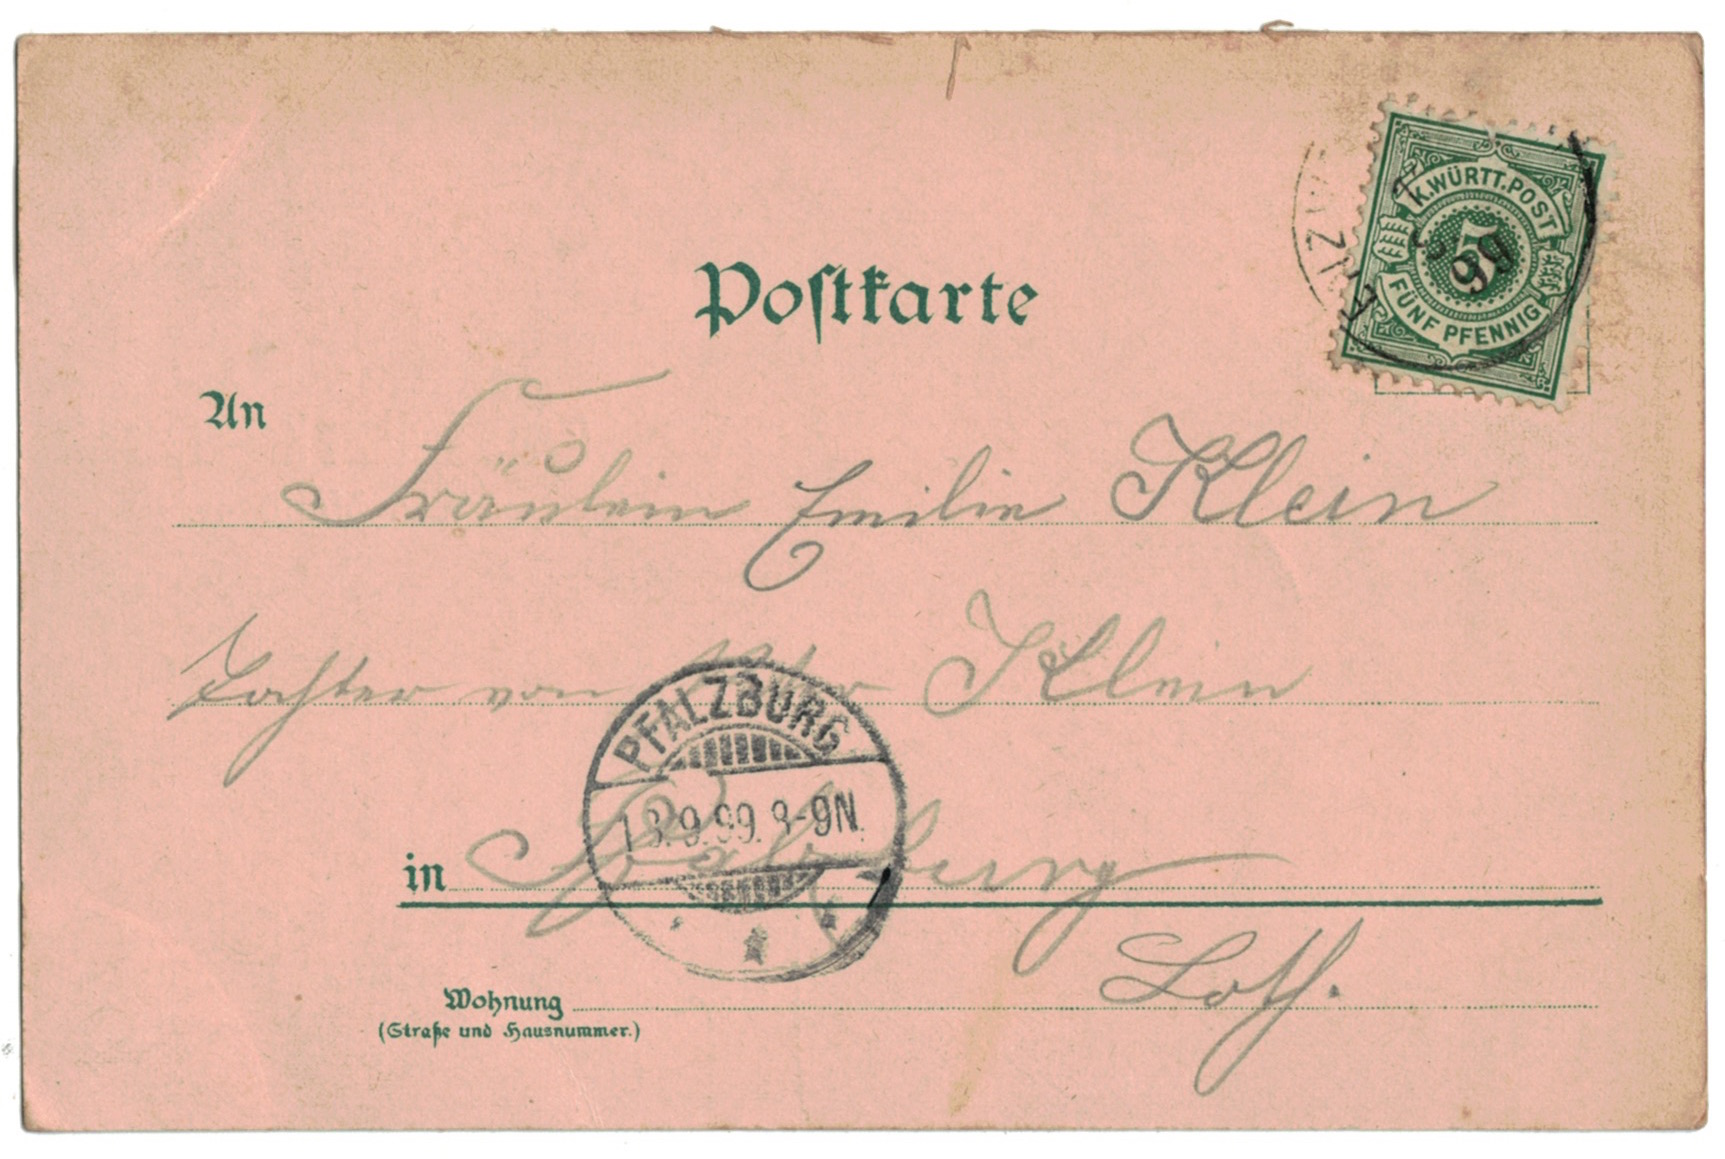 K. WÜRTT. POST
5
FÜNF PFENNIG
99
Postkarte
An
Fräulein Emilie Klein
Tochter von Klein
PFALZBURG
13.9.99. 8-9N.
in Pfalzburg
Loth.
Wohnung
(Straße und Hausnummer.)